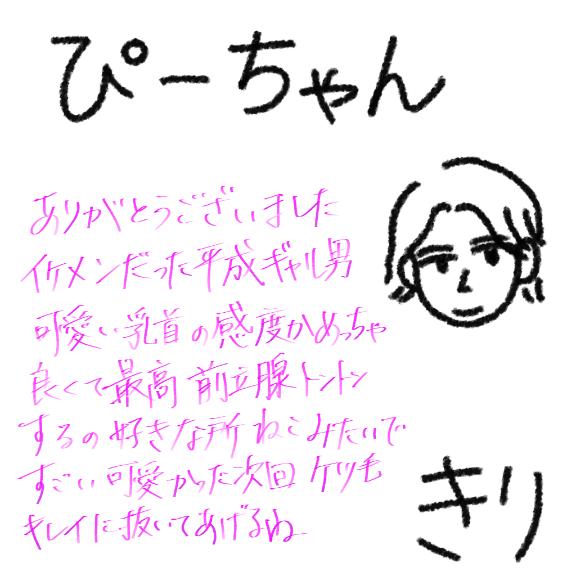 ぴーちゃん
ありがとうございました
イケメンだった平成ギャル男
可愛い乳首の感度がめっちゃ
良くて最高 前立腺トントン
するの好きな所 ねこみたいで
すごい可愛かった次回 ケツ毛
キレイに抜いてあげるね
きり